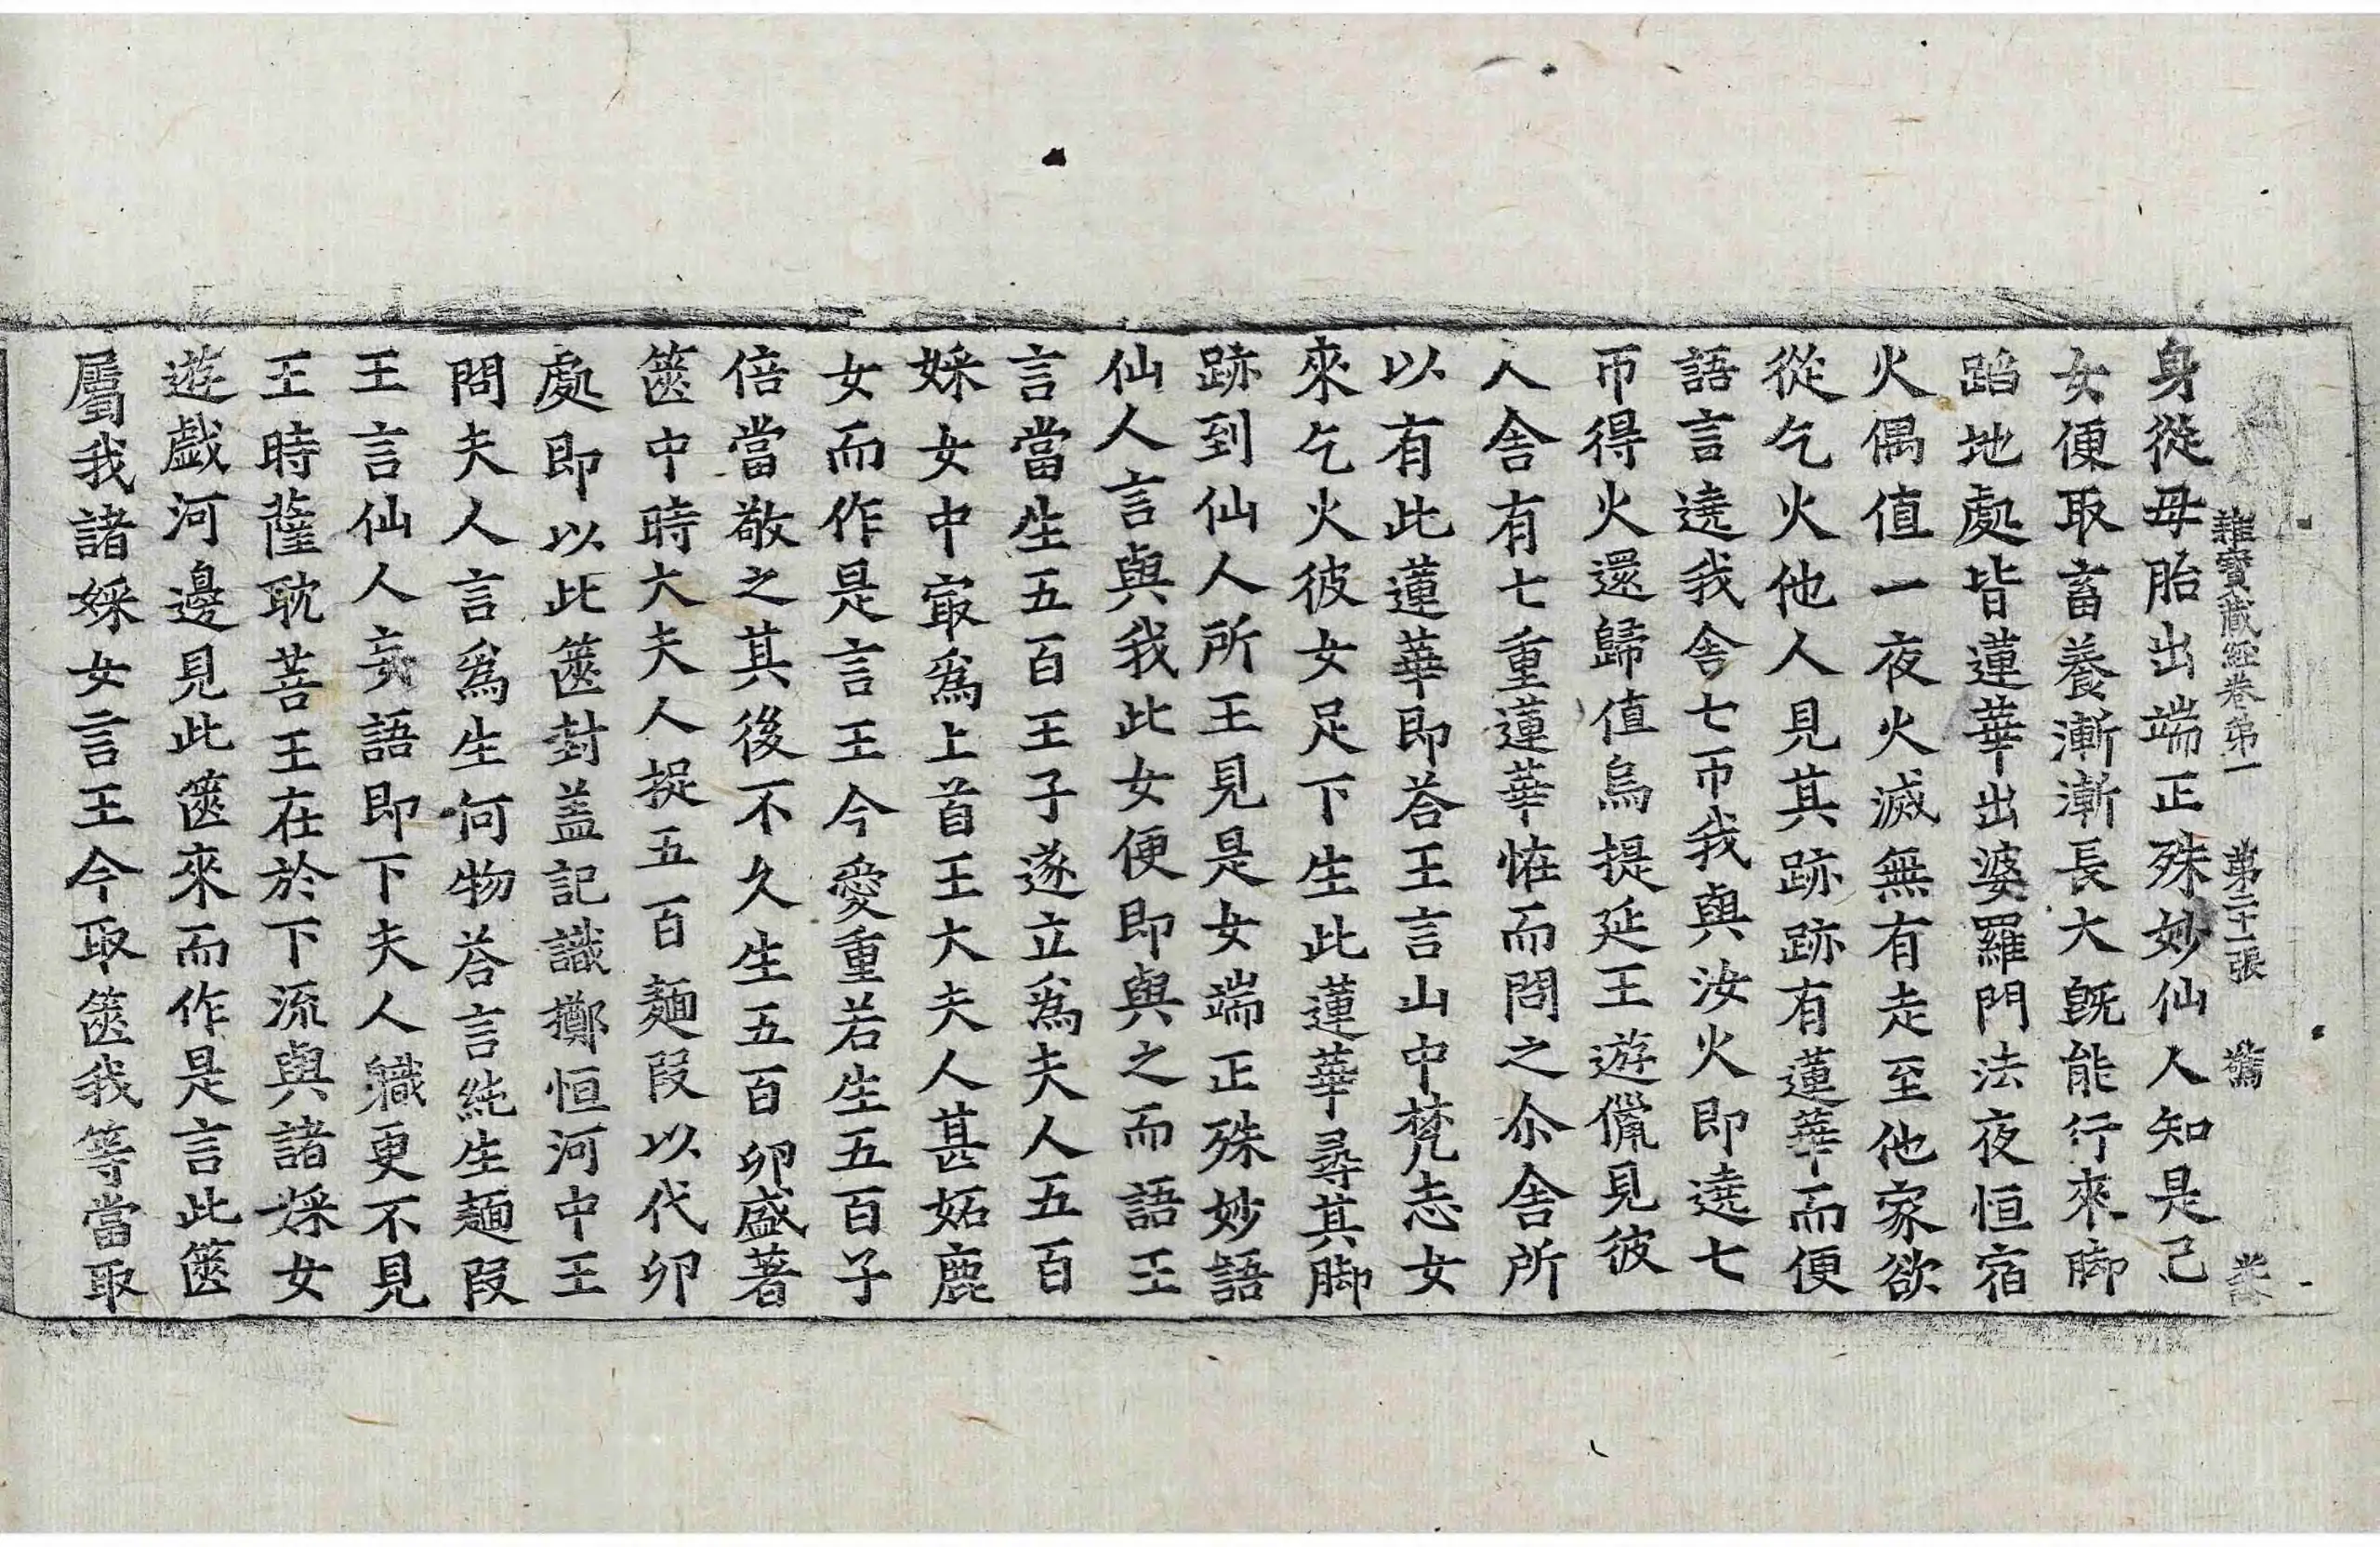 雜寳藏經卷第一 第二十一張 驚
身從母胎出端正殊妙仙人知是己
女便取畜養漸漸長大旣能行來脚
蹈地處皆蓮華出婆羅門法夜恒宿
火偶值一夜火滅無有走至他家欲
從乞火他人見其跡跡有蓮華而便
語言遶我舍七帀我與汝火即遶七
帀得火還歸值烏提延王遊儠見彼
人舍有七重蓮華恠而問之尒舍所
以有此蓮華即荅王言山中梵志女
來乞火彼女足下生此蓮華尋其脚
跡到仙人所王見是女端正殊妙語
仙人言與我此女便即與之而語王
言當生五百王子遂立爲夫人五百
婇女中㝡爲上首王大夫人甚妬鹿
女而作是言王今愛重若生五百子
倍當敬之其後不久生五百卵盛著
篋中時大夫人捉五百麵段以代卵
處即以此篋封蓋記識擲恒河中王
問夫人言爲生何物荅言純生麵段
王言仙人妄語即下夫人軄更不見
王時薩耽菩王在於下流與諸婇女
遊戲河邊見此篋來而作是言此篋
屬我諸婇女言王今取篋我等當取